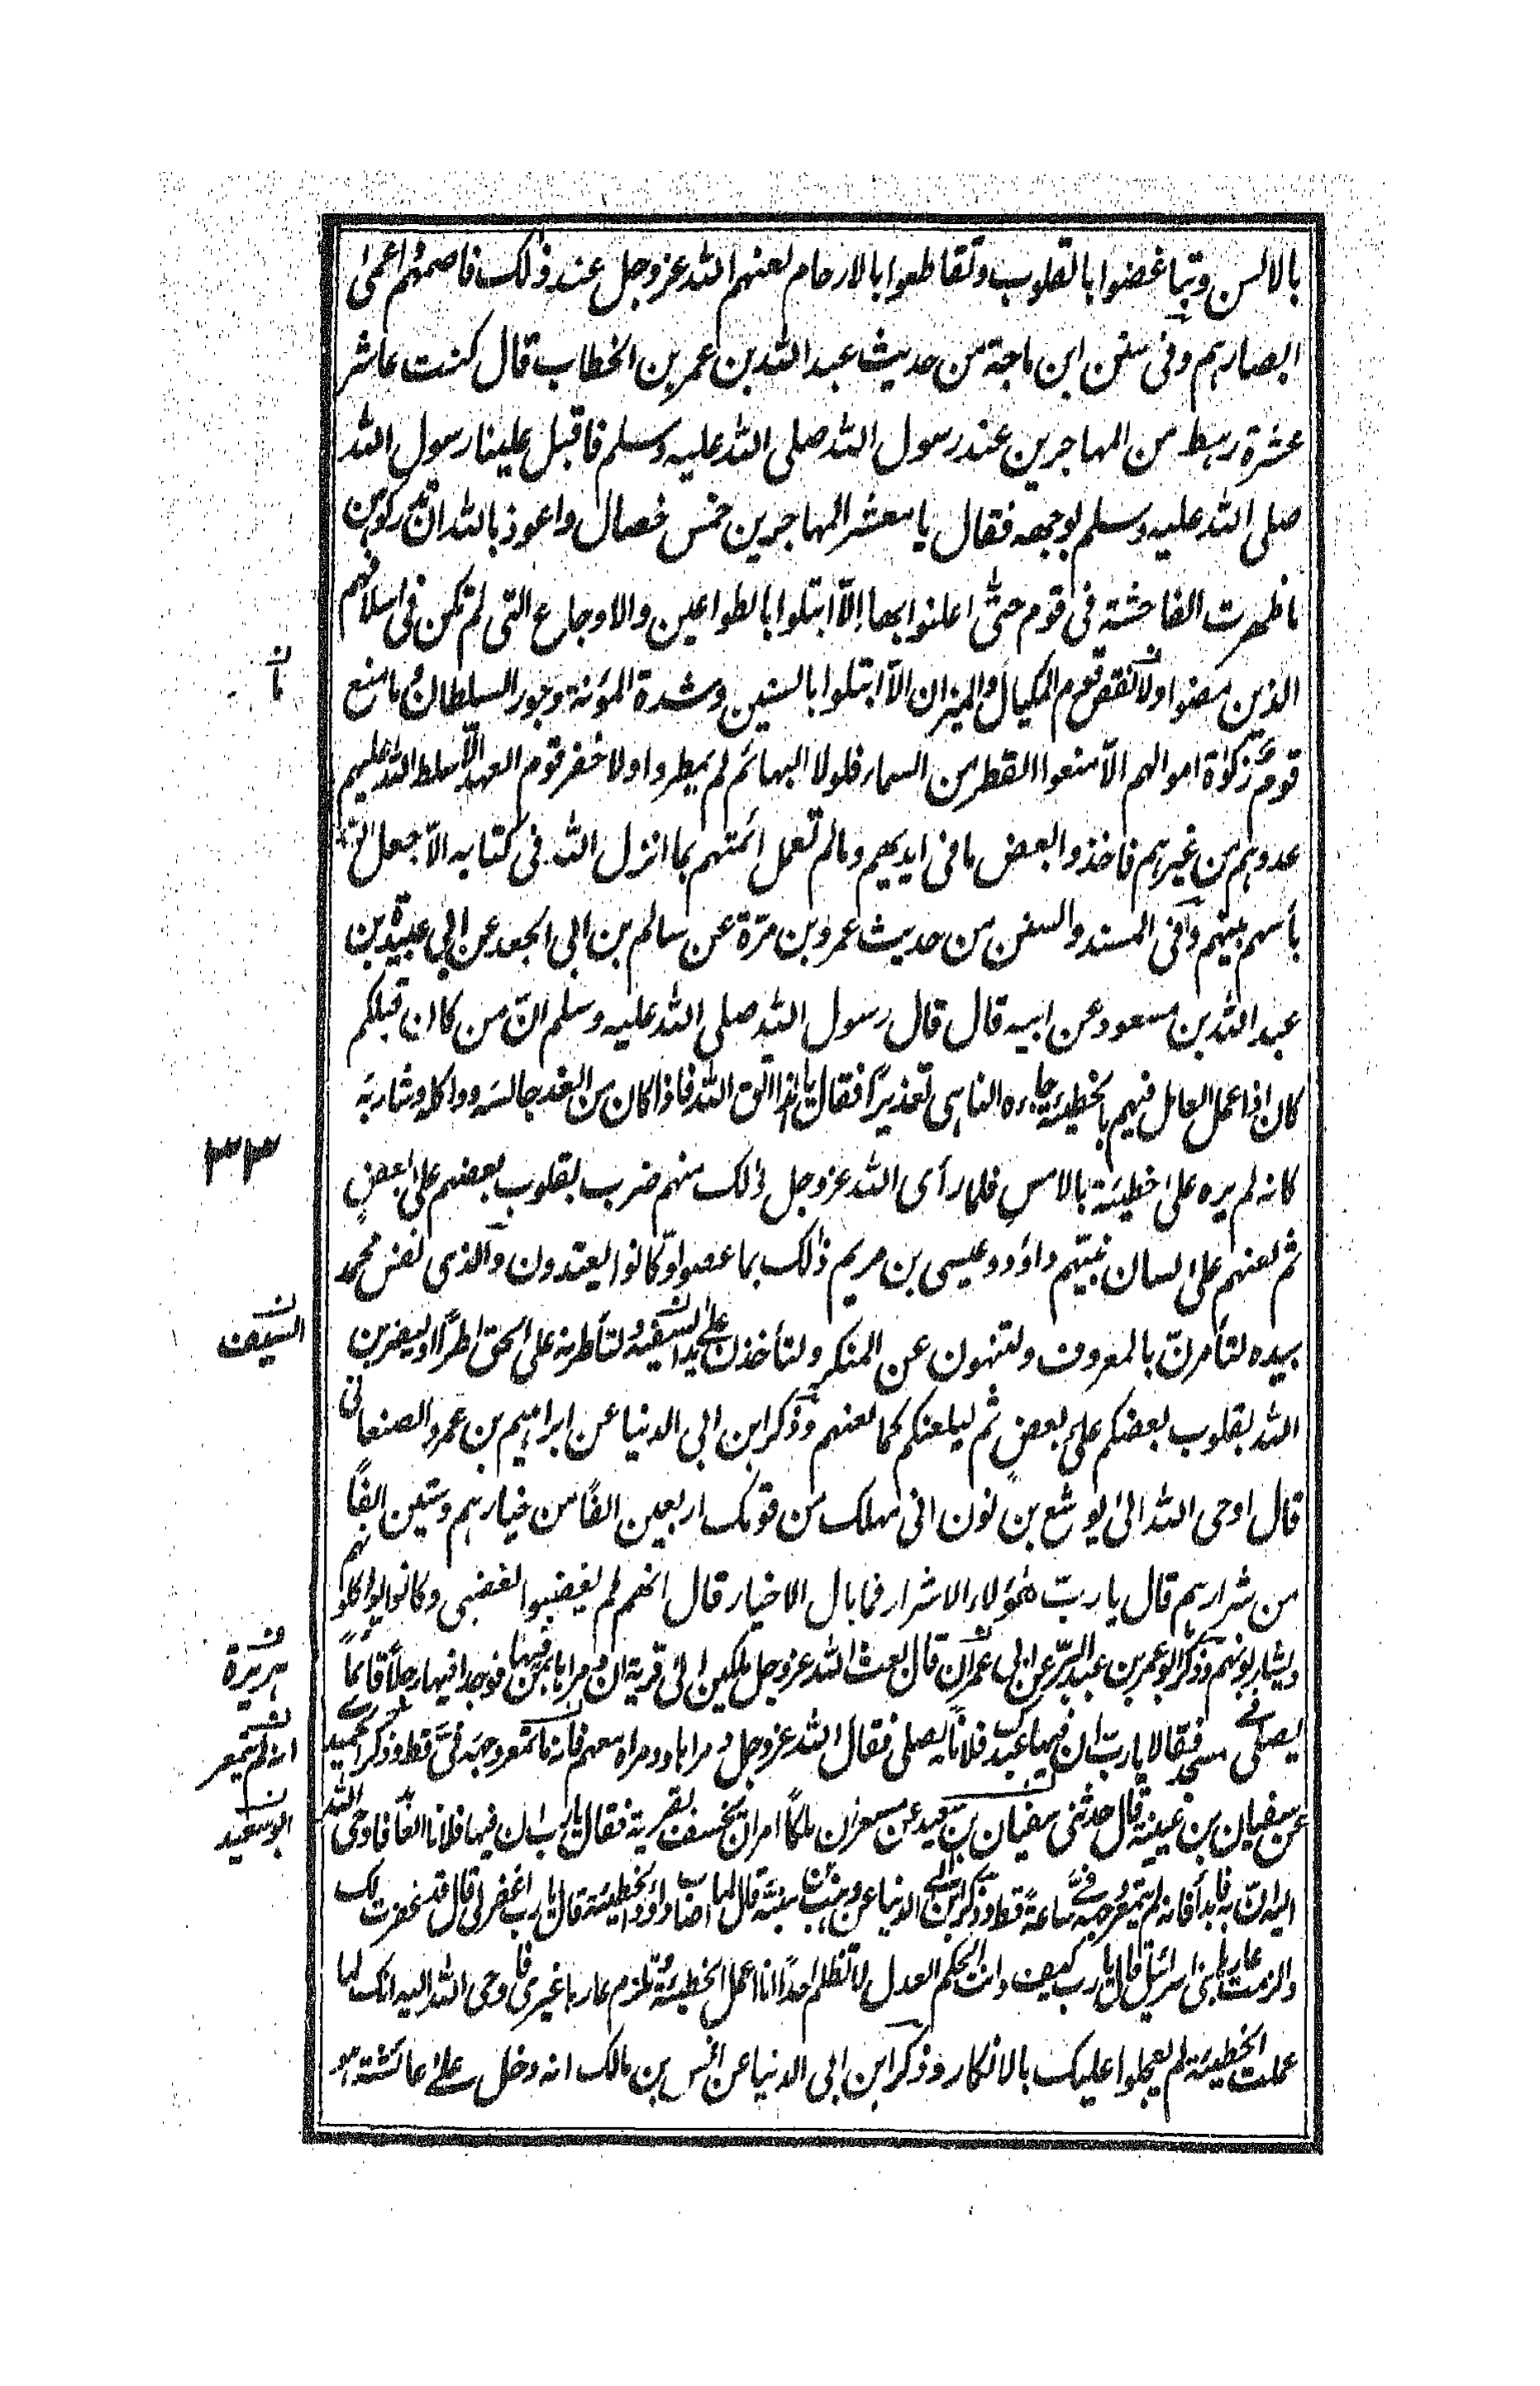 بالالسن وتباغضوا بالقلوب وتقاطعوا بالارحام لعنهم الله عزوجل عند ذٰلك فاصمهم واعمىٰ
ابصارهم وفي سنن ابن ماجة من حديث عبد الله بن عمر بن الخطاب قال كنت عاشر
عشرة رهط من المهاجرين عند رسول الله صلى الله عليه وسلم فاقبل علينا رسول الله
صلى الله عليه وسلم بوجهه فقال يا معشر المهاجرين خمس خصال واعوذ بالله ان تدركوهن
ما ظهرت الفاحشة في قوم حتّٰى اعلنوا بها إلّا ابتلوا بالطواعين والاوجاع التي لم تكن في اسلافهم
الذين مضوا ولا نقص قوم المكيال والميزان الّا ابتلوا بالسنين وشدة المؤنة وجور السلطان وما منع
قوم زكوٰة اموالهم الّا منعوا القطر من السماء فلولا البهائم لم يمطروا ولا خفر قوم العهد الّا سلط الله عليهم
عدوهم من غيرهم فاخذوا بعض ما في ايديهم وما لم تعمل ائمتهم بما انزل الله في كتابه الّا جعل الله
بأسهم بينهم وفي المسند والسنن من حديث عمرو بن مرّة عن سالم بن ابي الجعد عن ابي عبيدة بن
عبد الله بن مسعود عن ابيه قال قال رسول الله صلى الله عليه وسلم انّ من كان قبلكم
كان اذا عمل العامل فيهم بالخطيئة جاءه الناهي تعذيرًا فقال يا هٰذا اتق الله فاذا كان من الغد جالسه وواكله وشاربه
كانه لم يره علىٰ خطيئة بالامس فلما رأى الله عزوجل ذٰلك منهم ضرب بقلوب بعضهم علىٰ بعضٍ
ثم لعنهم علىٰ لسان نبيّهم داوٗد وعيسى بن مريم ذٰلك بما عصوا وّكانوا يعتدون والذي نفس محمد
بيده لتأمرنّ بالمعروف ولتنهون عن المنكر ولتأخذن علىٰ يد السفيه ولتأطرنه على الحق اطرًا او ليضربن
الله بقلوب بعضكم علىٰ بعضٍ ثم ليلعنكم كما لعنهم وذكر ابن ابي الدنيا عن ابراهيم بن عمرو الصنعاني
قال اوحى الله الىٰ يوشع بن نون اني مهلك من قومك اربعين الفًا من خيارهم وستين الفًا
من شرارهم قال يا ربّ هٰؤلاء الاشرار فما بال الاخيار قال انهم لم يغضبوا لغضبي وكانوا يواكلونهم
ويشاربونهم وذكر ابو عمر بن عبد البرّ عن ابي عمران قال بعث الله عزوجل ملكين الىٰ قرية ان دمراها بمن فيها فوجدا فيها رجلًا قائمًا
يصلي في مسجد فقالا يا ربّ ان فيها عبدك فلانًا يصلي فقال الله عزوجل دمراها ودمراه معهم فانه ما تمعر وجهه فيَّ قط وذكر الحميدي
عن سفيان بن عيينة قال حدثني سفيان بن سعيد عن مسعر ان ملكًا امر ان يخسف بقرية فقال يا رب ان فيها فلانا العابد فاوحى الله
اليه ان به فابدأ فانه لم يتمعر وجهه فيَّ ساعةً قط وذكر ابن ابي الدنيا عن وهب بن منبّه قال لما اصاب داوٗد الخطيئة قال يا رب اغفر لي قال قد غفرت لك
والزمت عارها بني اسرائيل قال يا رب كيف وانت الحكم العدل لا تظلم احدًا انا اعمل الخطيئة وتلزم عارها غيري فاوحى الله اليه انك لما
عملت الخطيئة لم يعجلوا عليك بالانكار وذكر ابن ابي الدنيا عن انس بن مالك انه دخل علىٰ عائشة هو
ما
٣٣
السفيه
هريرة
انه لم يتمعر
ابو سعيد